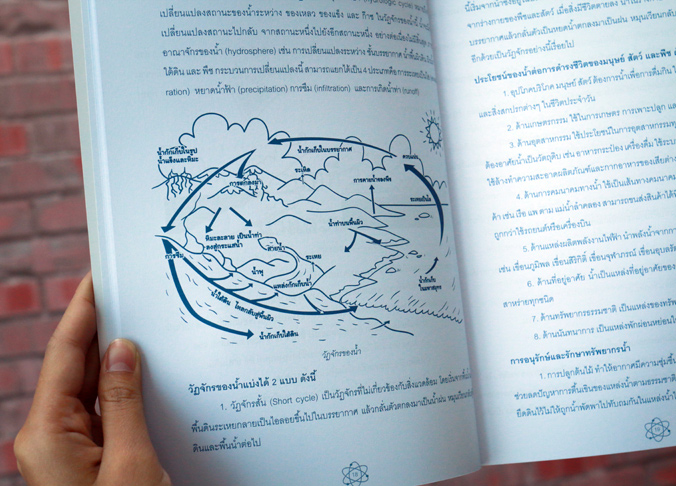 เปลี่ยนแปลงสถานะของน้ำระหว่าง ของเหลว ของแข็ง และ ก๊าซ ในวัฏจักรของน้ำนี้
เปลี่ยนแปลงสถานะไปกลับ จากสถานะหนึ่งไปยังอีกสถานะหนึ่ง อย่างต่อเนื่องไม่มีที่สิ้นสุด
อาณาจักรของน้ำ (hydrosphere) เช่น การเปลี่ยนแปลงระหว่าง ชั้นบรรยากาศ น้ำพื้นผิวดิน
ใต้ดิน และ พืช กระบวนการเปลี่ยนแปลงนี้ สามารถแยกได้เป็น 4 ประเภทคือ
ration) หยาดน้ำฟ้า (precipitation) การซึม (infiltration) และการเกิดน้ำท่า (runoff)
น้ำกักเก็บในรูป
น้ำแข็งและหิมะ
น้ำกักเก็บในบรรยากาศ
การตกลงมา
ระเหิด
การคายน้ำของพืช
ระเหยเป็นไอ
หิมะละลาย เป็นน้ำท่า
ลงสู่กระแสน้ำ
น้ำท่าบนพื้นผิว
การซึม
สายน้ำ
น้ำพุ
ระเหย
แหล่งกักเก็บน้ำ
น้ำใต้ดิน ไหลกลับสู่พื้นผิว
น้ำกักเก็บ
ในมหาสมุทร
น้ำกักเก็บใต้ดิน
วัฏจักรของน้ำ
วัฏจักรของน้ำแบ่งได้ 2 แบบ ดังนี้
1. วัฏจักรสั้น (Short cycle) เป็นวัฏจักรที่ไม่เกี่ยวข้องกับสิ่งแวดล้อม โดยเริ่มจาก
พื้นดินระเหยกลายเป็นไอลอยขึ้นไปในบรรยากาศ แล้วกลั่นตัวตกลงมาเป็นน้ำฝน หมุนเวียน
ดินและพื้นน้ำต่อไป
จากร่างกายของพืชและสัตว์ เมื่อสิ่งมีชีวิตตายลง
บรรยากาศแล้วกลั่นตัวเป็นหยดน้ำตกลงมาเป็นฝน หมุนเวียน
อีกด้วยเป็นวัฏจักรอย่างนี้เรื่อยไป
ประโยชน์ของน้ำต่อการดำรงชีวิตของมนุษย์ สัตว์ และพืช
1. อุปโภคบริโภค มนุษย์ สัตว์ ต้องการน้ำเพื่อการดื่มกิน
และสิ่งสกปรกต่างๆ ในชีวิตประจำวัน
2. ด้านเกษตรกรรม ใช้ในการเกษตร การเพาะปลูก
3. ด้านอุตสาหกรรม ใช้ประโยชน์ในการอุตสาหกรรม
ต้องอาศัยน้ำเป็นวัตถุดิบ เช่น อาหารกระป๋อง เครื่องดื่ม
ใช้ล้างทำความสะอาดผลิตภัณฑ์และกากอาหารของเสีย
4. ด้านการคมนาคมทางน้ำ ใช้เป็นเส้นทางคมนาคม
ถูกกว่าใช้รถยนต์หรือเครื่องบิน
5. ด้านแหล่งผลิตพลังงานไฟฟ้า นำพลังน้ำจาก
เช่น เขื่อนภูมิพล เขื่อนสิริกิติ์ เขื่อนจุฬาภรณ์
6. ด้านที่อยู่อาศัย น้ำเป็นแหล่งที่อยู่อาศัยของ
สาหร่ายทุกชนิด
7. ด้านทรัพยากรธรรมชาติ เป็นแหล่งของ
8. ด้านนันทนาการ เป็นแหล่งพักผ่อนหย่อนใจ
การอนุรักษ์และรักษาทรัพยากรน้ำ
1. การปลูกต้นไม้ ทำให้อากาศมีความชุ่มชื้น
ช่วยลดปัญหาการตื้นเขินของแหล่งน้ำตามธรรมชาติ
ยึดดินไว้ไม่ให้ถูกน้ำพัดพาไปทับถมกันในแหล่งน้ำ